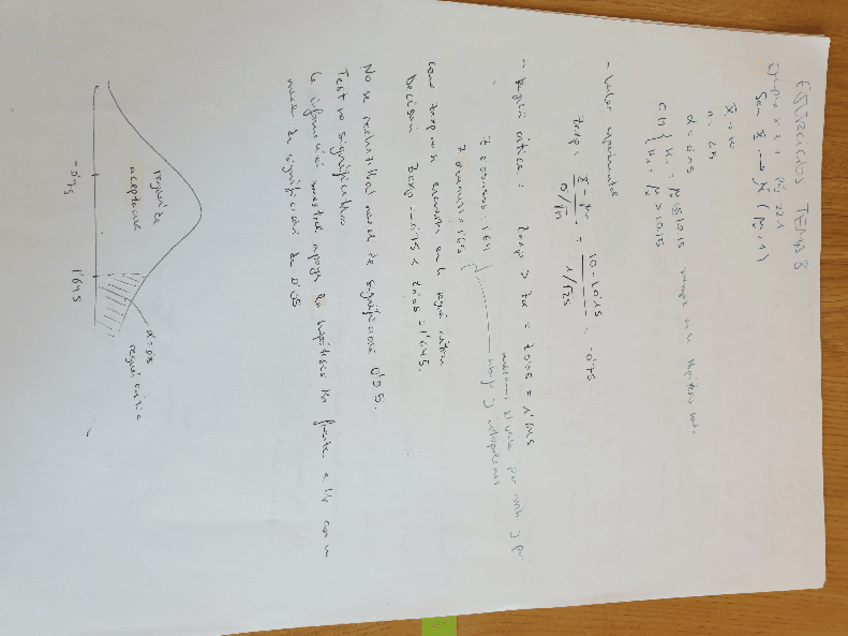 EJERCICIOS TEMA 8
Ejemplo 8.3.1 Pág 221
Sea X → N (μ, 1)
x̄ = 10
n = 25
α = 0'05
C.H { H₀ = μ ≤ 10'15 siempre en la hipótesis
H₁ = μ > 10'15
- Valor experimental
Zexp = x̄ - μ₀ / σ/√n = 10 - 10'15 / 1/√25 = -0'75
- Región crítica: Zexp > Zα = Z0'05 = 1'645
el valor por arriba y por
abajo y interpolamos
Como Zexp no se encuentra en la región crítica
Decisión Zexp = -0'75 < Z0'05 = 1'645.
No se rechaza H₀ al nivel de significación 0'05.
Test no significativo
La información muestral apoya la hipótesis H₀ frente a H₁ con un
nivel de significación de 0'05
región de
aceptación
región crítica
-0'75
1'645